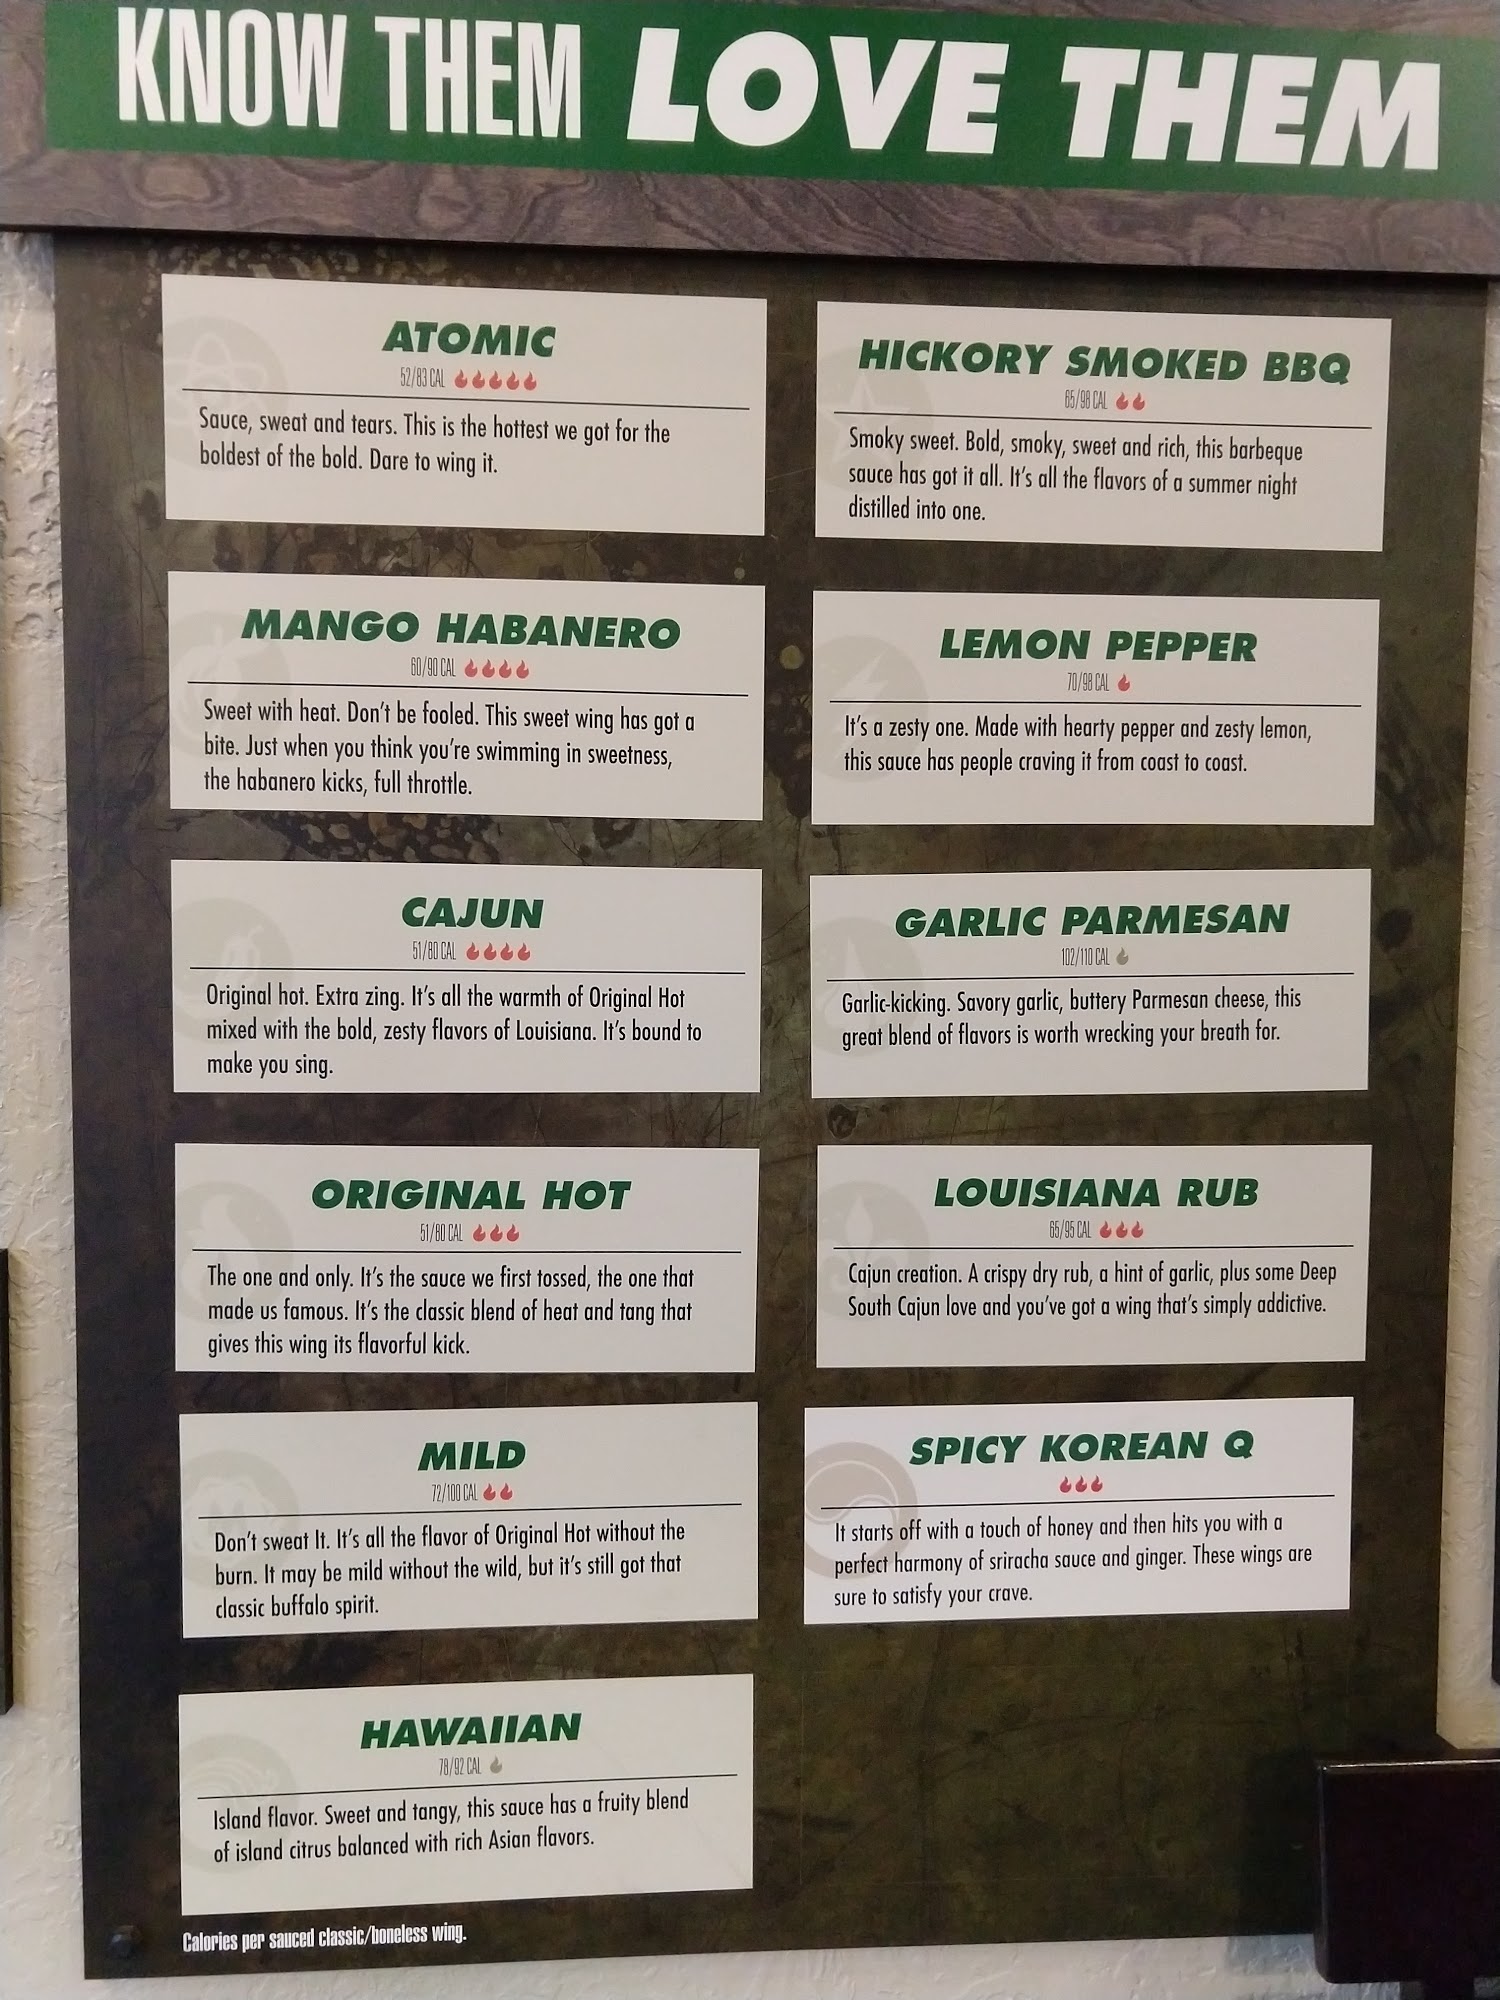 KNOW THEM LOVE THEM
ATOMIC
52/83 CAL
Sauce, sweat and tears. This is the hottest we got for the
boldest of the bold. Dare to wing it.
MANGO HABANERO
60/90 CAL
Sweet with heat. Don't be fooled. This sweet wing has got a
bite. Just when you think you're swimming in sweetness,
the habanero kicks, full throttle.
CAJUN
51/80 CAL
Original hot. Extra zing. It's all the warmth of Original Hot
mixed with the bold, zesty flavors of Louisiana. It's bound to
make you sing.
ORIGINAL HOT
51/80 CAL
The one and only. It's the sauce we first tossed, the one that
made us famous. It's the classic blend of heat and tang that
gives this wing its flavorful kick.
MILD
72/100 CAL
Don't sweat It. It's all the flavor of Original Hot without the
burn. It may be mild without the wild, but it's still got that
classic buffalo spirit.
HAWAIIAN
78/92 CAL
Island flavor. Sweet and tangy, this sauce has a fruity blend
of island citrus balanced with rich Asian flavors.
HICKORY SMOKED BBQ
65/98 CAL
Smoky sweet. Bold, smoky, sweet and rich, this barbeque
sauce has got it all. It's all the flavors of a summer night
distilled into one.
LEMON PEPPER
70/98 CAL
It's a zesty one. Made with hearty pepper and zesty lemon,
this sauce has people craving it from coast to coast.
GARLIC PARMESAN
102/110 CAL
Garlic-kicking. Savory garlic, buttery Parmesan cheese, this
great blend of flavors is worth wrecking your breath for.
LOUISIANA RUB
65/95 CAL
Cajun creation. A crispy dry rub, a hint of garlic, plus some Deep
South Cajun love and you've got a wing that's simply addictive.
SPICY KOREAN Q
It starts off with a touch of honey and then hits you with a
perfect harmony of sriracha sauce and ginger. These wings are
sure to satisfy your crave.
Calories per sauced classic/boneless wing.